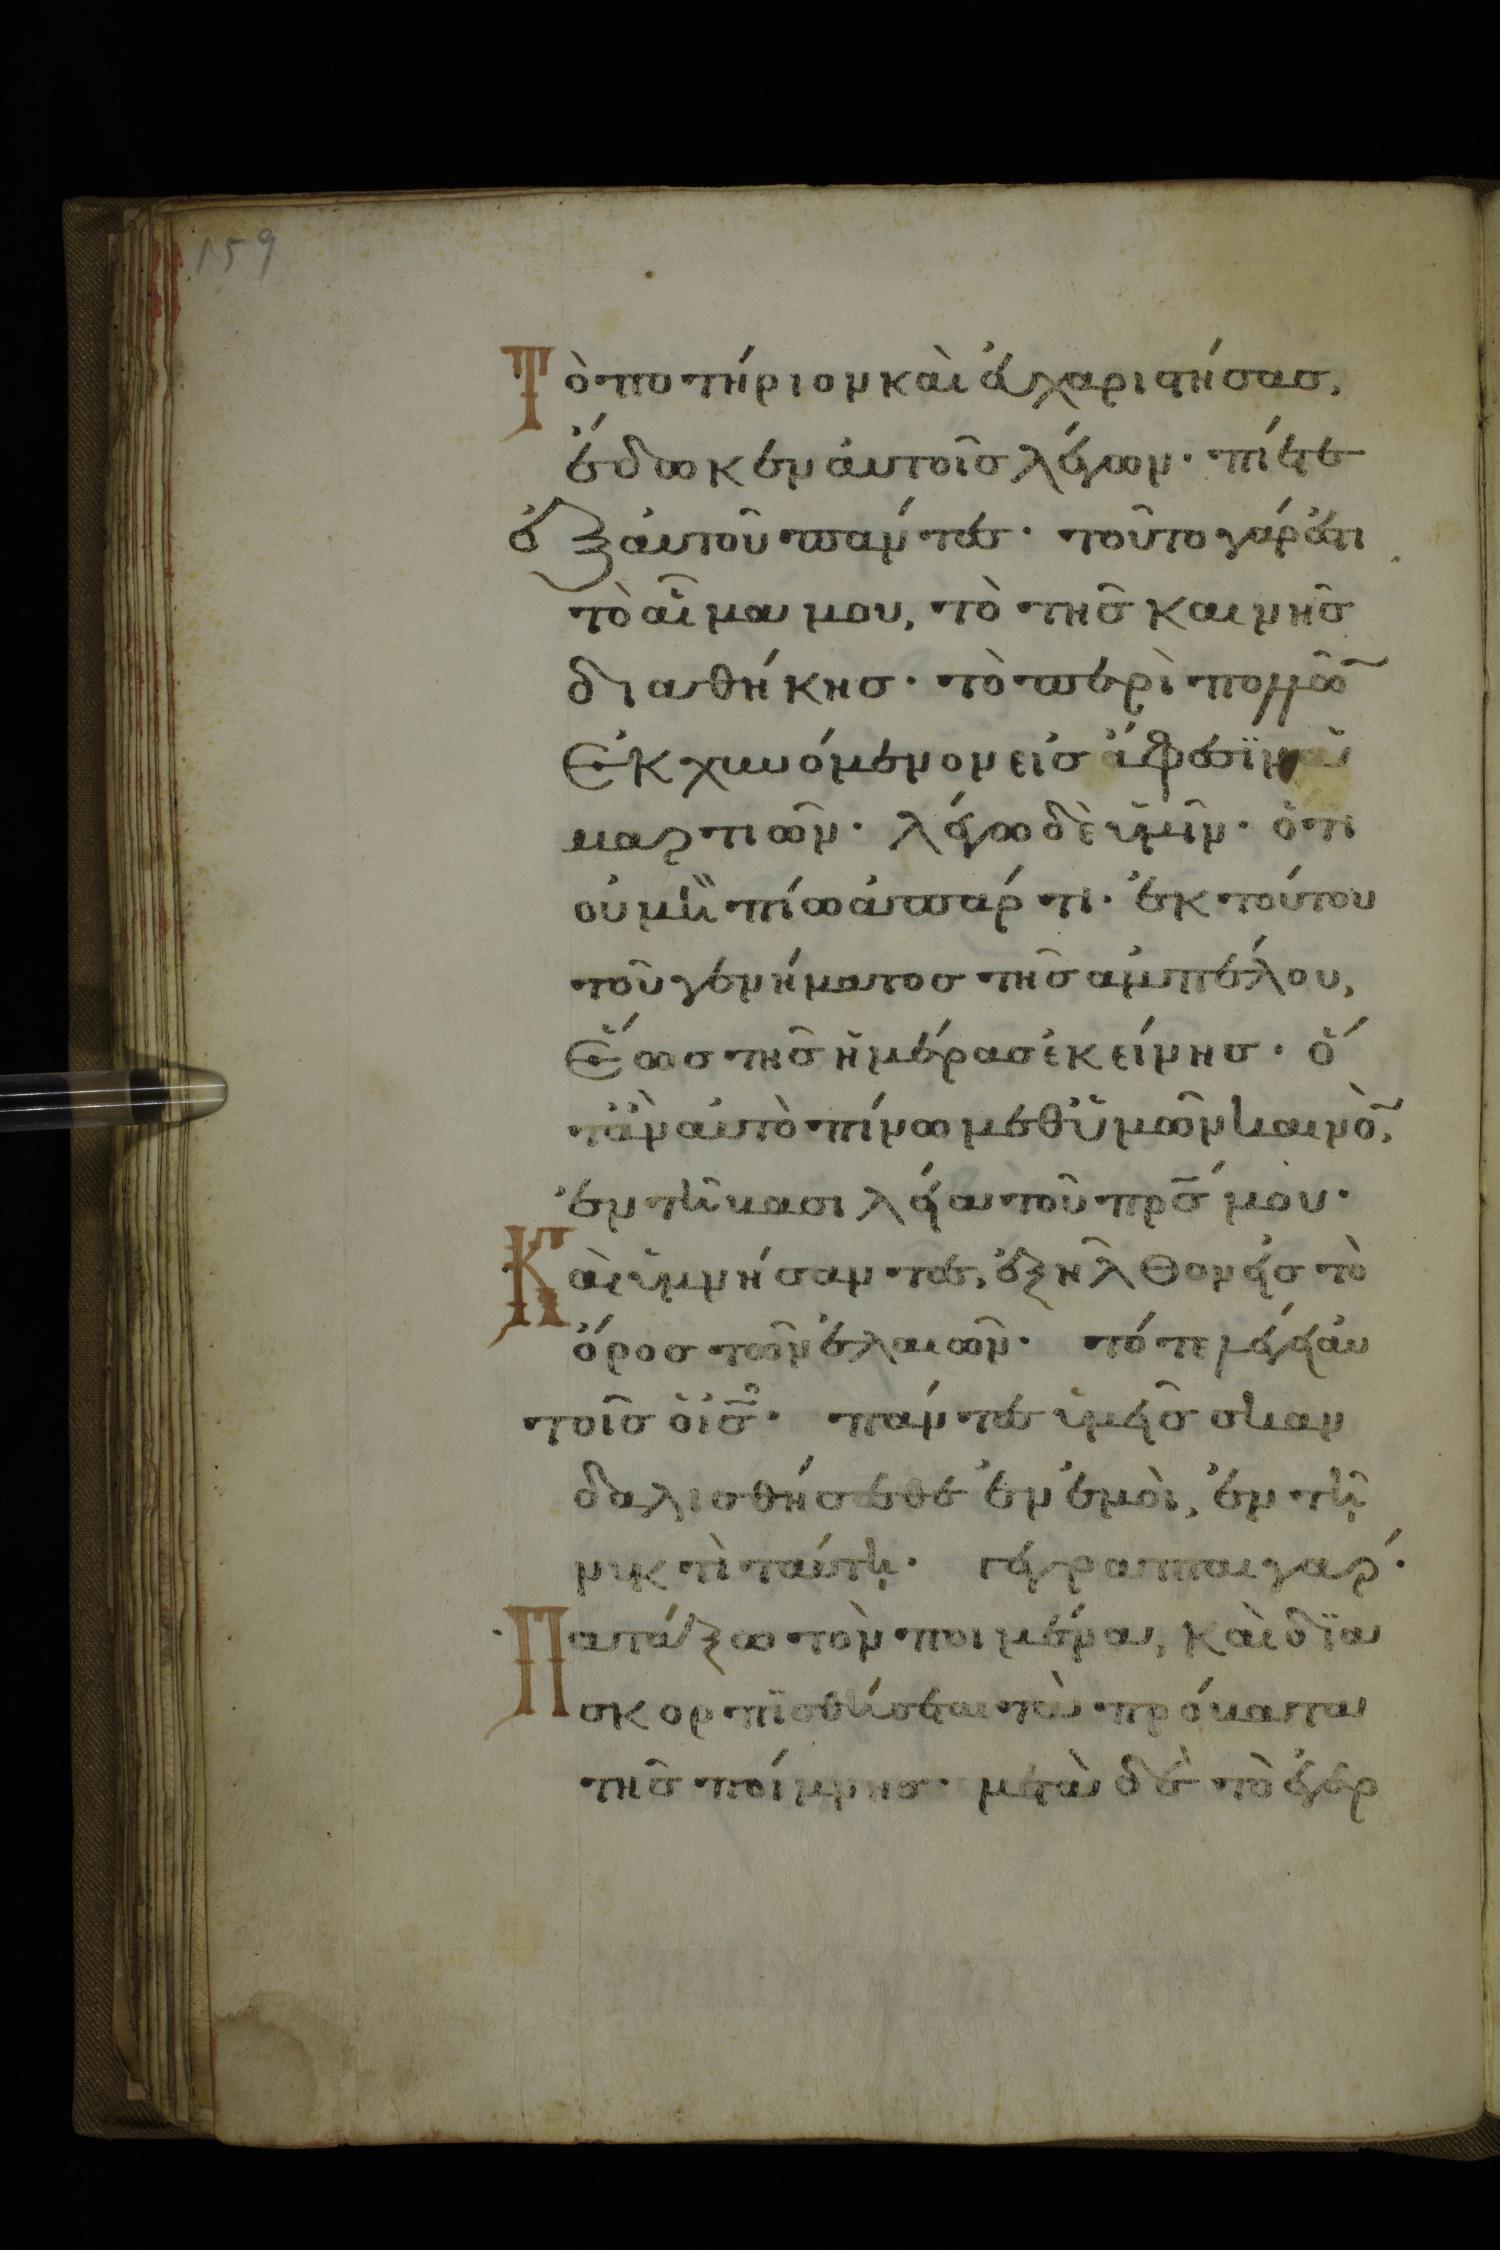 159
Τὸ ποτήριον καὶ εὐχαριστήσασ,
ἔδωκεν αὐτοῖσ λέγων· πίετε
ἐξ αὐτοῦ πάντεσ· τοῦτο γάρ ἐστι
τὸ αἷμα μου, τὸ τῆσ καινῆσ
διαθήκησ· τὸ περὶ πολλῶ̃
ἐκχυνόμενον εἰσ ἄφεσϊν ἁ
μαρτιῶν· λέγω δὲ ὑμῖν· ὅτι
οὐ μὴ πίω ἀπάρτι· ἐκ τούτου
τοῦ γενήματοσ τῆσ ἀμπέλου,
ἕωσ τῆσ ἡμέρασ ἐκείνησ· ὅ
τἂν αὐτὸ πίνω μεθ ὑμῶν καινὸ̃,
ἐν τῆ βασιλεία τοῦ πρ̅σ μου·
Καὶ ὑμνήσαντεσ, ἐξῆλθον εἰσ τὸ
ὄροσ τῶν ἐλαιῶν· τότε λέγει αὐ
τοῖσ ὁ ἰσ̅· πάντεσ ὑμεῖσ σκαν
δαλισθήσεσθε ἐν ἐμοὶ, ἐν τῆ
νυκτὶ ταύτη· γέγραπται γαρ́·
Πατάξω τὸν ποιμένα, καὶ δϊα
σκορπϊσθήσεται τὰ πρόβατα
τῆσ ποίμνησ· μετὰ δὲ τὸ ἐγερ